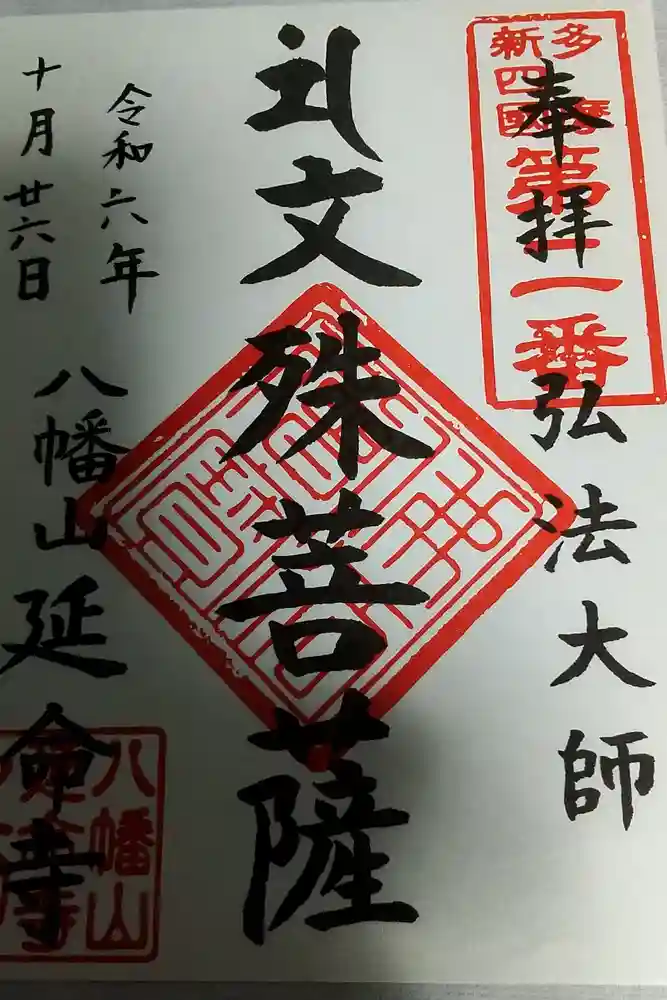 奉拝
弘法大師
多摩
新四國
第二番
礼文殊菩薩
令和六年
十月廿六日
八幡山延命寺
八幡山
延命寺